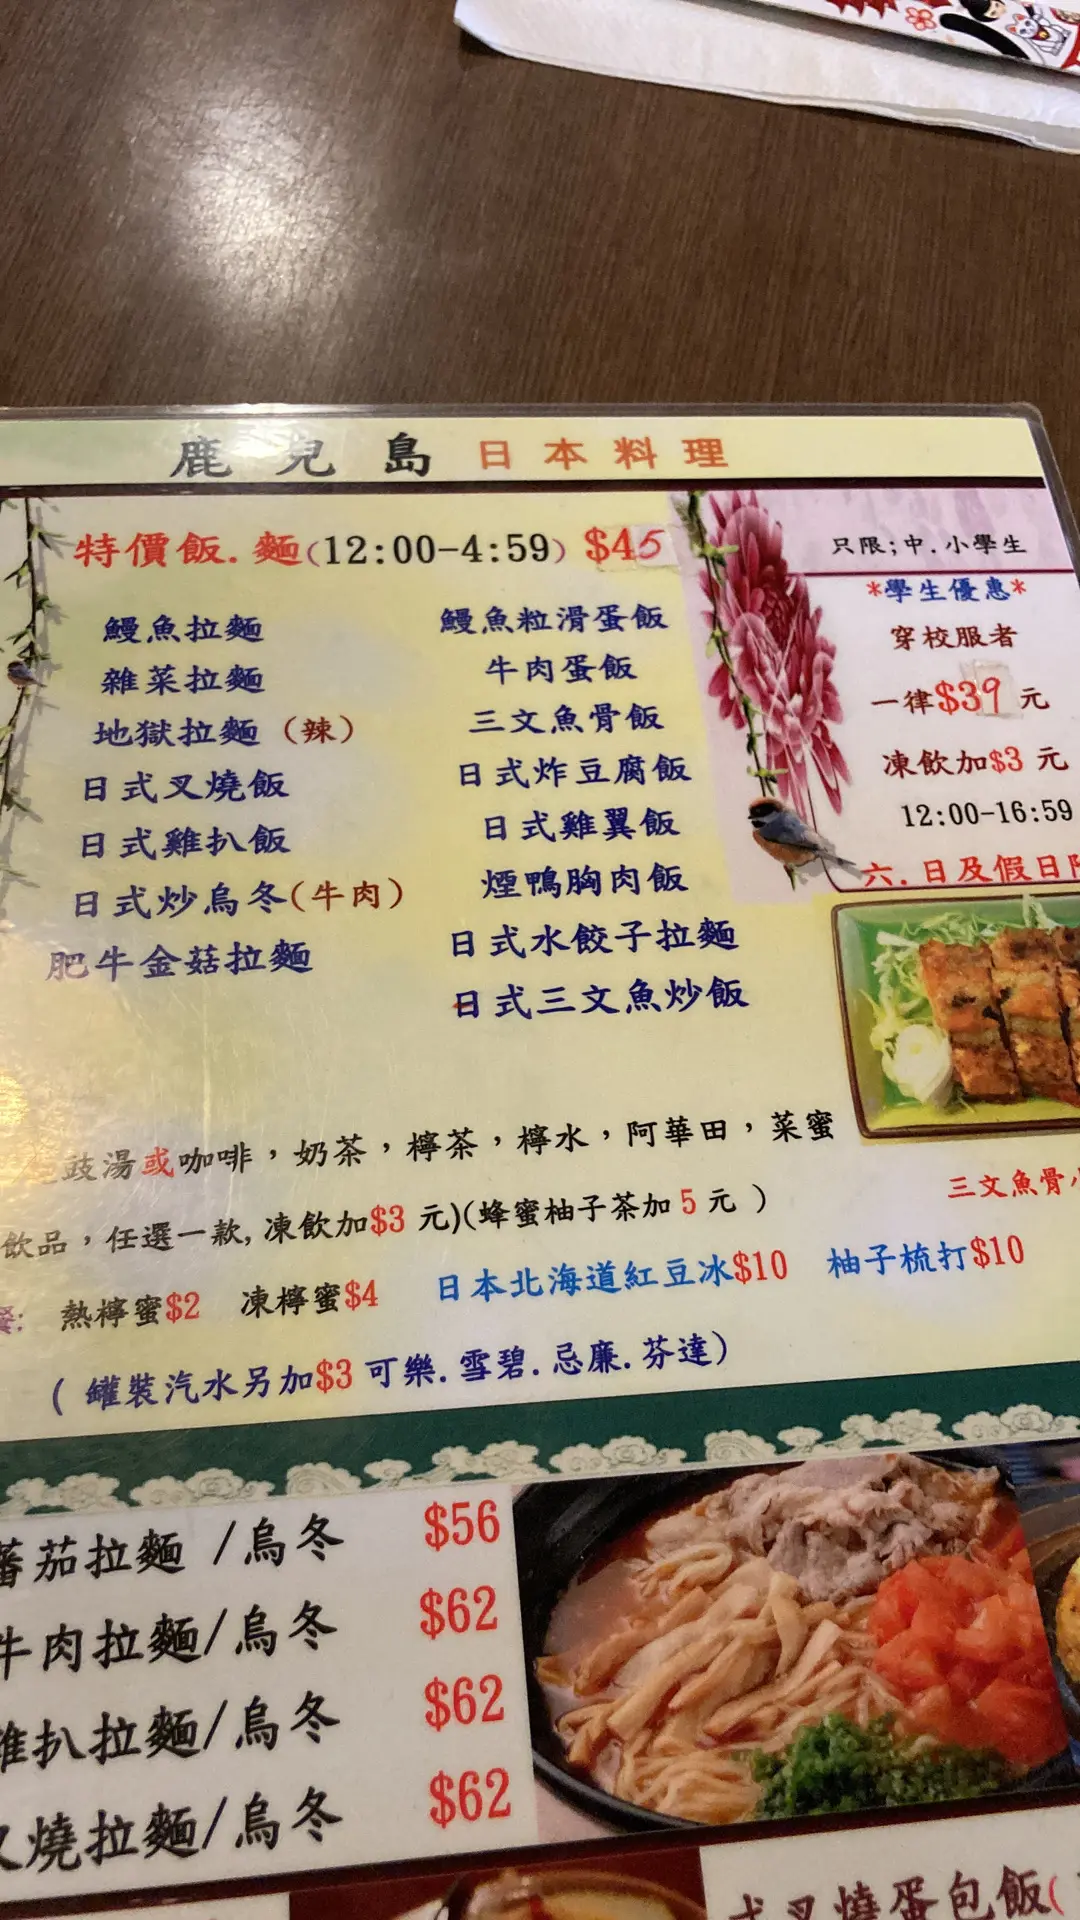 鹿兒島 日本料理
特價飯.麵(12:00-4:59) $45
鰻魚拉麵
雜菜拉麵
地獄拉麵(辣)
日式叉燒飯
日式雞扒飯
日式炒烏冬(牛肉)
肥牛金菇拉麵
鰻魚粒滑蛋飯
牛肉蛋飯
三文魚骨飯
日式炸豆腐飯
日式雞翼飯
煙鴨胸肉飯
日式水餃子拉麵
日式三文魚炒飯
只限;中.小學生
*學生優惠*
穿校服者
一律$39元
凍飲加$3元
12:00-16:59
六.日及假日
豉湯或咖啡,奶茶,檸茶,檸水,阿華田,菜蜜
飲品,任選一款,凍飲加$3元)(蜂蜜柚子茶加5元)
熱檸蜜$2 凍檸蜜$4 日本北海道紅豆冰$10 柚子梳打$10
(罐裝汽水另加$3可樂.雪碧.忌廉.芬達)
三文魚骨
蕃茄拉麵/烏冬 $56
牛肉拉麵/烏冬 $62
雞扒拉麵/烏冬 $62
叉燒拉麵/烏冬 $62
式叉燒蛋包飯(